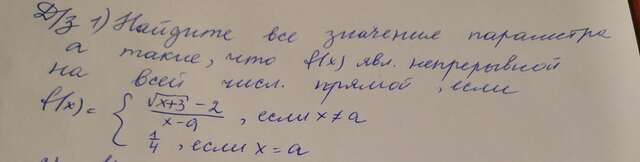 Д/з 1) Найдите все значение параметра
а такие, что f(x) явл. непрерывной
на всей числ. прямой, если
f(x) = { (√(x+3) - 2)/(x - a), если x ≠ a
1/4, если x = a